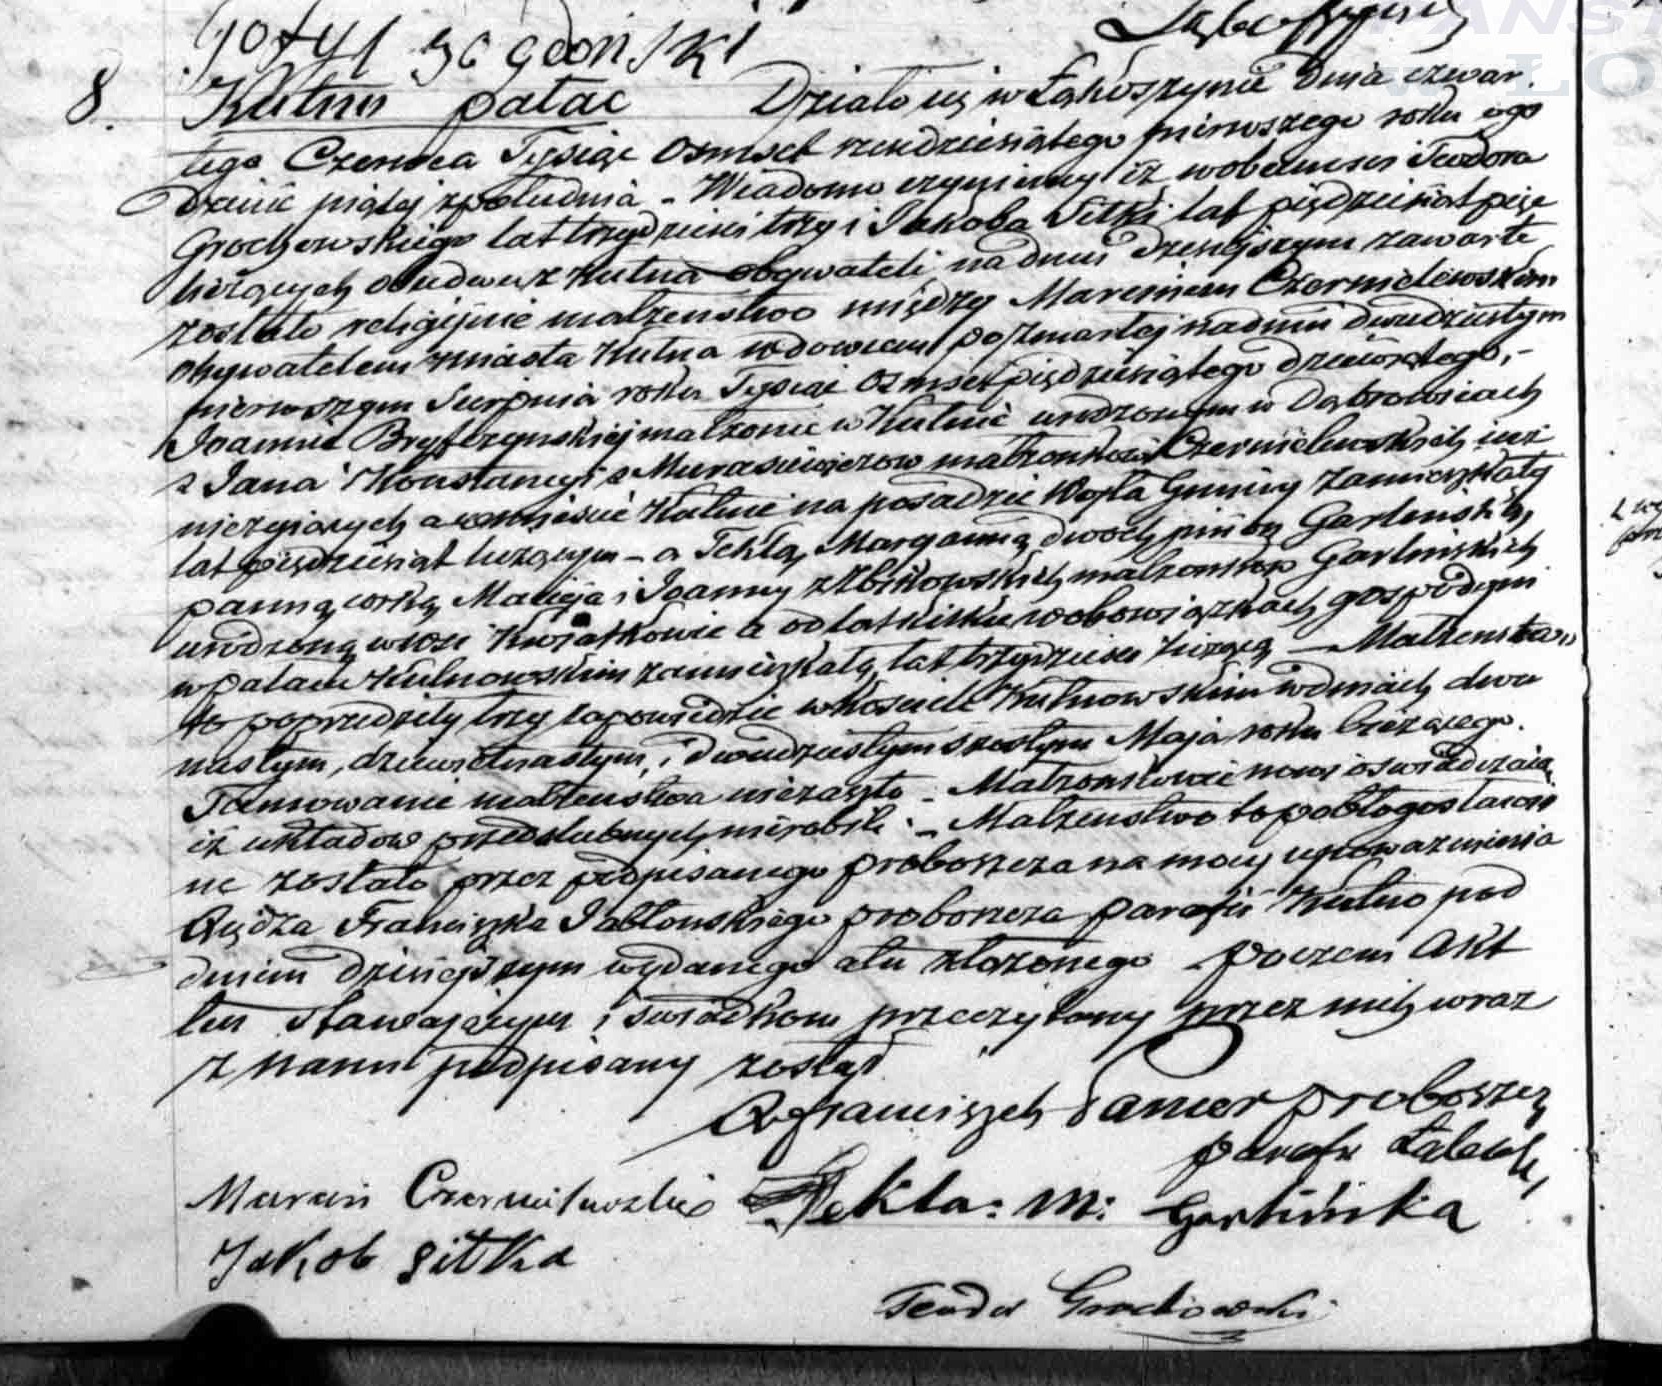 8. Kutno pałac Działo się w Łąkoszynie dnia czwar
tego Czerwca Tysiąc Osmset sześćdziesiątego pierwszego roku ogo
dzinie piątej z południa - Wiadomo czynimy iż w obecności Teodora
Grochowskiego lat trzydzieści trzy i Jakoba Sitki lat pięćdziesiąt pięć
liczących obudwu z Kutna obywateli, na dniu dzisiejszym zawarte
zostało religijnie małżenstwo między Marcinem Czermielewskim
obywatelem miasta Kutna wdowcem po zmarłej na dniu dwudziestym
pierwszym Sierpnia roku Tysiąc Osmset pięćdziesiątego dziewiątego,-
Joannie małżonce w Kutnie urodzonym w Dąbrowicach
z Jana i Konstancyi z małżonków Czermielewskich już
nieżyiących a w mieście Kutnie na posadzie Wojta Gminy zamieszkały
lat pięćdziesiąt liczącym - a Teklą Maryanną dwoch imion Garlińską,
panną corką Macieja i Joanny z Zbikowskich małżonków Garlińskich
urodzoną w wsi Kwiatkowie a od lat kilku w obowiązkach gospodyni
w pałacu Kutnowskim zamieszkałą, lat trzydzieści liczącą - Małżenstwo
to poprzedziły trzy zapowiedzie w kościele Kutnowskim w dniach dwu
nastym, dziewiętnastym, i dwudziestym szostym Maja roku bieżącego.
Tamowanie małżenstwa niezaszło - Małżonkowie nowi oswiadczaią
iż układow przedslubnych nierobili - Małżenstwo to pobłogosławio
ne zostało przez podpisanego proboszcza na mocy upoważnienia
Xiędza Franciszka Jabłonskiego proboszcza parafii Kutno pod
dniem dzisiejszym wydanego a tu złożonego poczem Akt
ten stawającym i swiadkom przeczytany przez nich wraz
z nami podpisany został
X Franciszek proboszcz
parafii
Marcin Czermielewski Tekla: M: Garlińska
Jakob Sitka
Teodor Grochowski